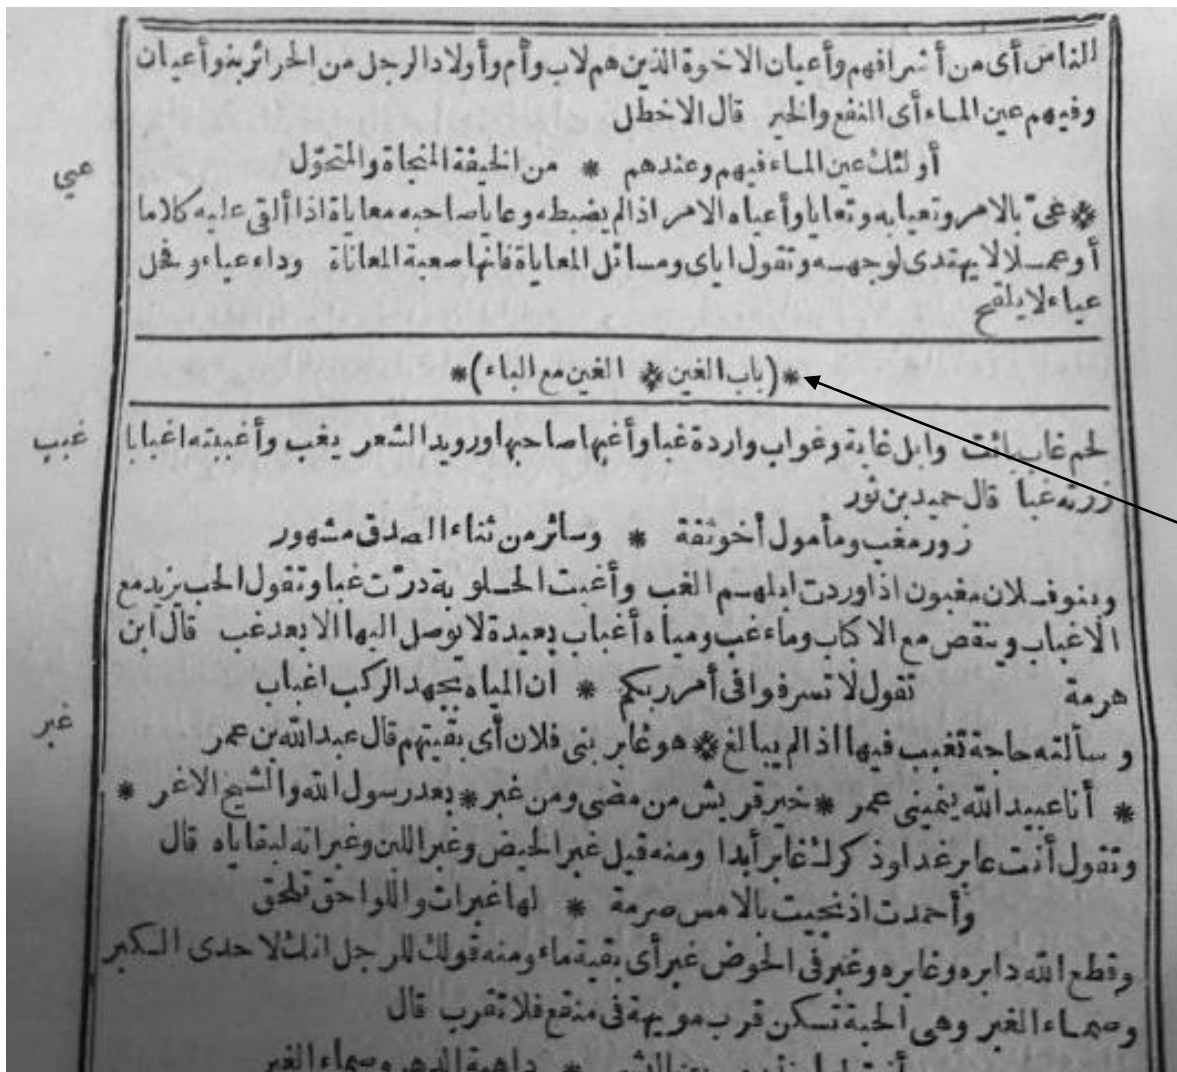 للناس أى من أشرافهم وأعيان الاخوة الذين هم لاب وأم وأولاد الرجل من الحرائر بنو أعيان
وفيهم عين الماء أى النفع والخير قال الاخطل
أولئك عين الماء فيهم وعندهم * من الخيفة المنجاة والمتحوّل
عيي
* عىّ بالامر وتعيابه وتعايا وأعياه الامر اذا لم يضبطه وعايا صاحبه معاياة اذا ألقى عليه كلاما
أوعملا لا يهتدى لوجهه وتقول اياى ومسائل المعاياة فانها صعبة المعاناة وداء عياء وفحل
عياء لا يلقح
*(باب الغين * الغين مع الباء)*
غبب
لحم غاب بائت وابل غابة وغواب واردة غبا وأغبها صاحبها ورويد الشعر يغب وأغببته اغبابا
زرته غبا قال حميد بن ثور
زور مغب ومأمول أخوثقة * وسائر من ثناء الصدق مشهور
وبنو فلان مغبون اذا وردت ابلهم الغب وأغبت الحلوبة درّت غبا وتقول الحب يزيد مع
الاغباب وينقص مع الاكاب وماء غب ومياه أغباب بعيدة لا يوصل اليها الا بعد غب قال ابن
هرمة تقول لا تسرفوا فى أمر ربكم * ان المياه بجهد الركب اغباب
غبر
وسألته حاجة تغبب فيها اذا لم يبالغ * هو غابر بنى فلان أى بقيتهم قال عبد الله بن عمر
* أنا عبيد الله ينمينى عمر * خير قريش من مضى ومن غبر * بعد رسول الله والشيخ الاغر *
وتقول أنت غابر غدا وذكرك غابر أبدا ومنه قيل غبر الحيض وغبر اللبن وغبراته لبقاياه قال
وأحمدت اذ نجيت بالامس صرمة * لها غبرات واللواحق تلحق
وقطع الله دابره وغابره وغبر فى الحوض غبر أى بقية ماء ومنه قولك للرجل انك لاحدى الكبر
وصماء الغبر وهى الحية تسكن قرب مويهة فى منقع فلا تقرب قال
داهية الدهر وصماء الغبر